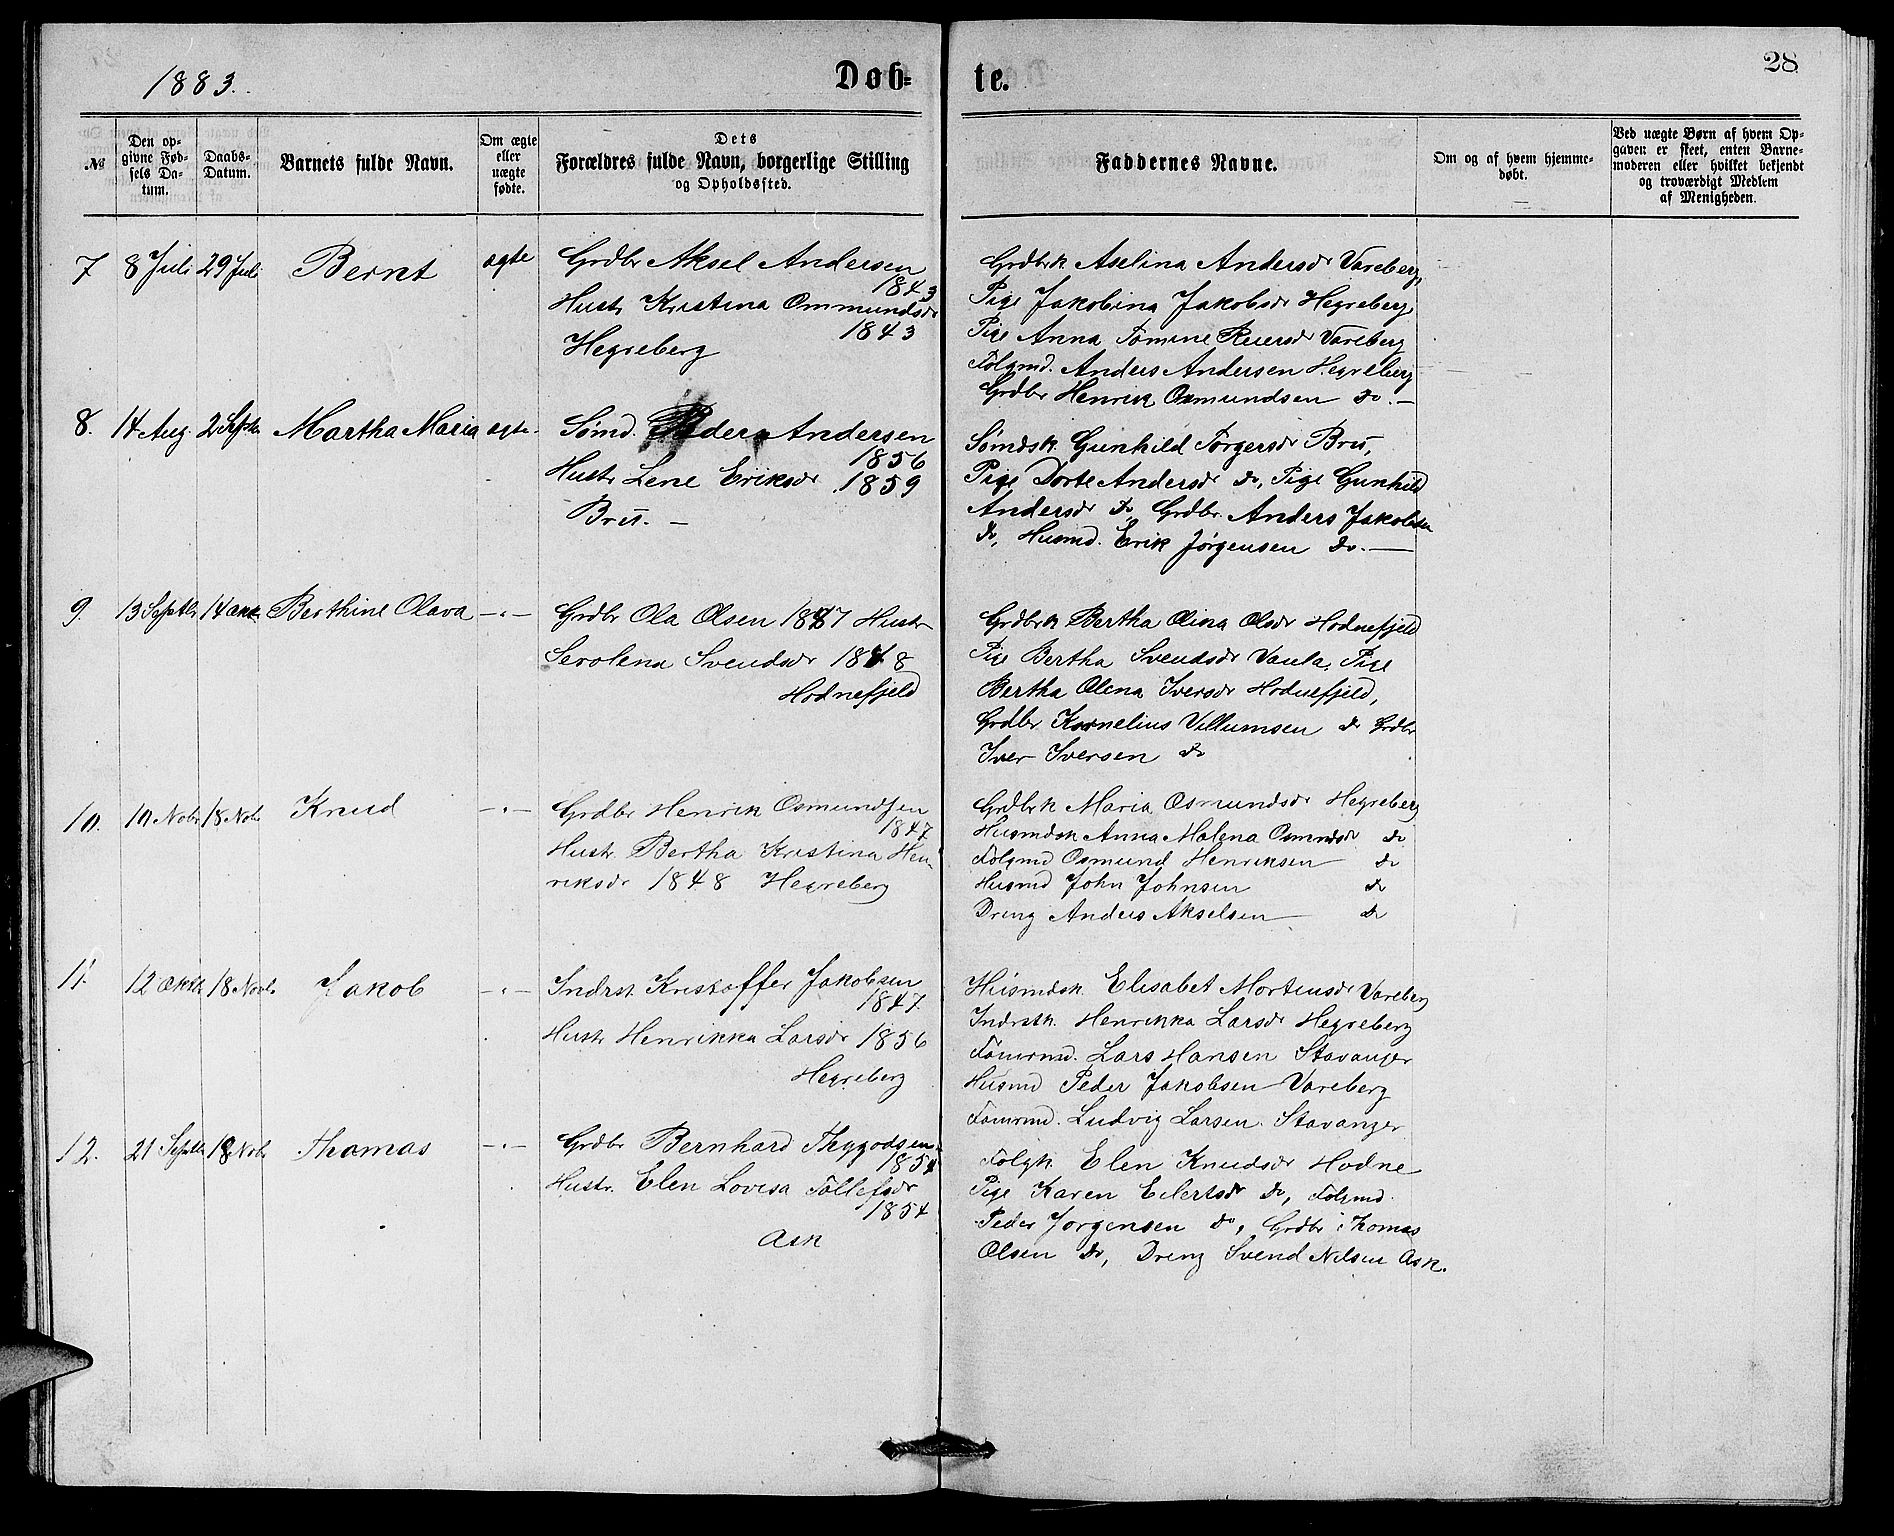 1883.
Døb-
te.
28
№
Den op-
givne Fød-
sels Da-
tum.
Daabs-
Datum.
Barnets fulde Navn.
Om ægte
eller
uægte
fødte.
Dets
Forældres fulde Navn, borgerlige Stilling
og Opholdssted.
Faddernes Navne.
Om og af hvem hjemme-
døbt.
Ved uægte Børn af hvem Op-
gaven er skeet, enten Barne-
moderen eller hvilket bekjendt
og troværdigt Medlem
af Menigheden.
7 8 Juli 29 Juli Bernt ægte
Grdbr Aksel Andersen
1843
Hustr Kristina Ommundsdr
1843
Hegreberg
Grdbrk Aselina Andersdr Vareberg,
Pige Jakobina Jakobsdr Hegreberg
Pige Anna Tomine Reiersdr Vareberg
Folgmd. Anders Andersen Hegreberg
Grdbr Henrik Osmundsen do. —
8. 14 Aug. 2 Septbr Martha Maria ægte
Sømd. Peder Andersen
1856
Hustr Lene Eriksdr 1859
Bru. —
Sømdsk. Gunhild Torgersdr Bru,
Pige Dorte Andersdr do, Pige Gunhild
Andersdr do, Grdbr. Anders Jakobsen
do, Husmd. Erik Jørgensen do. —
9. 13 Septbr 14 Oktr Berthine Olava —„—
Grdbr Ola Olsen 1847 Hustr
Serolena Svendsdr 1848
Hodnefjeld
Grdbrk Bertha Olina Olsdr Hodnefjeld
Pige Bertha Svendsdr Vaula, Pige
Bertha Olena Iversdr Hodnefjeld,
Grdbr Kornelius Villumsen do Grdbr
Iver Iversen do
10. 10 Nobr 18 Nobr Knud —„—
Grdbr Henrik Osmundsen
1847
Hustr. Bertha Kristina Hen-
riksdr 1848 Hegreberg
Grdbrk Maria Osmundsdr Hegreberg
Husmdsk Anna Malena Osmndsdr do
Folgmd Osmund Henriksen do
Husmd John Johnsen do
Dreng Anders Akselsen do
11. 12 Oktbr 18 Novbr Jakob —„—
Indrst. Kristoffer Jakobsen
1847.
Hustr Henrikka Larsdr 1856
Hegreberg
Husmdsk. Elisabet Mortensdr Vareberg
Indrstk. Henrikka Larsdr Hegreberg
Tømrmd. Lars Hansen Stavanger
Husmd Peder Jakobsen Vareberg
Tømrmd. Ludvig Larsen. Stavanger
12. 21 Septbr 18 Nobr Thomas —„—
Grdbr Bernhard Thygodsen
1854
Hustr. Elen Lovisa Tollefsdr
1854
Ask
Folgk. Elen Knudsdr Hodne
Pige Karen Eilertsdr do, Folgmd.
Peder Jorgensen do, Grdbr Thomas
Olsen do, Dreng Svend Nilsen Ask.